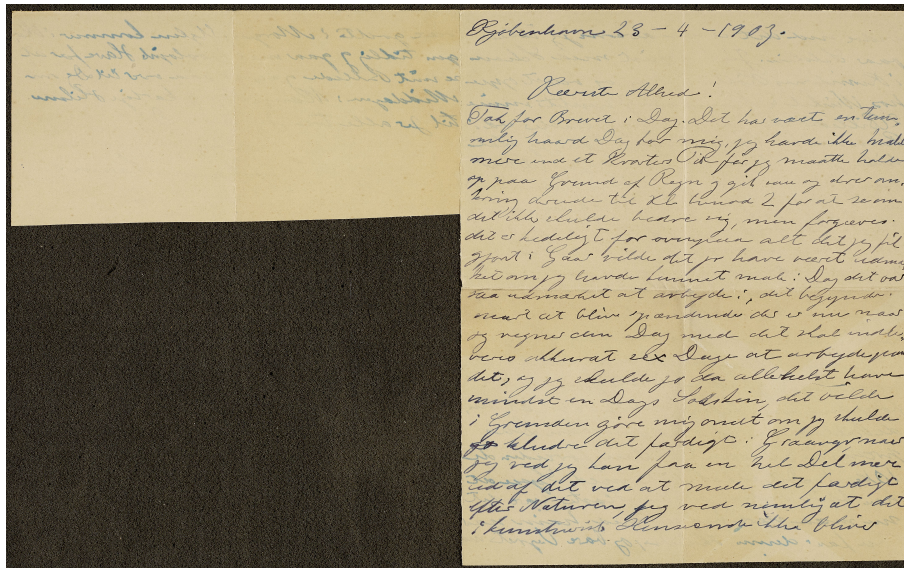 Kjöbenhavn 23 - 4 - 1903.
Kæreste Alhed!
Tak for Brevet i Dag. Det har vært en tem-
melig haard Dag for mig, jeg havde ikke malt
mere end et Kvarters Tid før jeg maatte holde
op paa Grund af Regn og gik saa og drev om-
kring derude til Kl. 2 for at se om
det ikke skulde bedre sig, men forgæves.
det er kedeligt for alt det jeg fik
gjort i Gaar vilde det jo have vært udmær-
ket om jeg havde kunnet male i Dag det var
saa udmærket at arbejde i, det begynder
snart at blive spændende der er nu naar
jeg regner den Dag med det skal indle-
veres akkurat sex Dage at arbejde paa
det, og jeg skulde jo da allehelst have
mindst en Dags Solskin, det vilde
i Grunden gøre mig ondt om jeg skulde
kludre det færdigt i Graavejr naar
jeg ved jeg kan faa en hel Del mer
ud af det ved at male det færdigt
efter Naturen, jeg ved nemlig at det
i Henseende ikke bliver